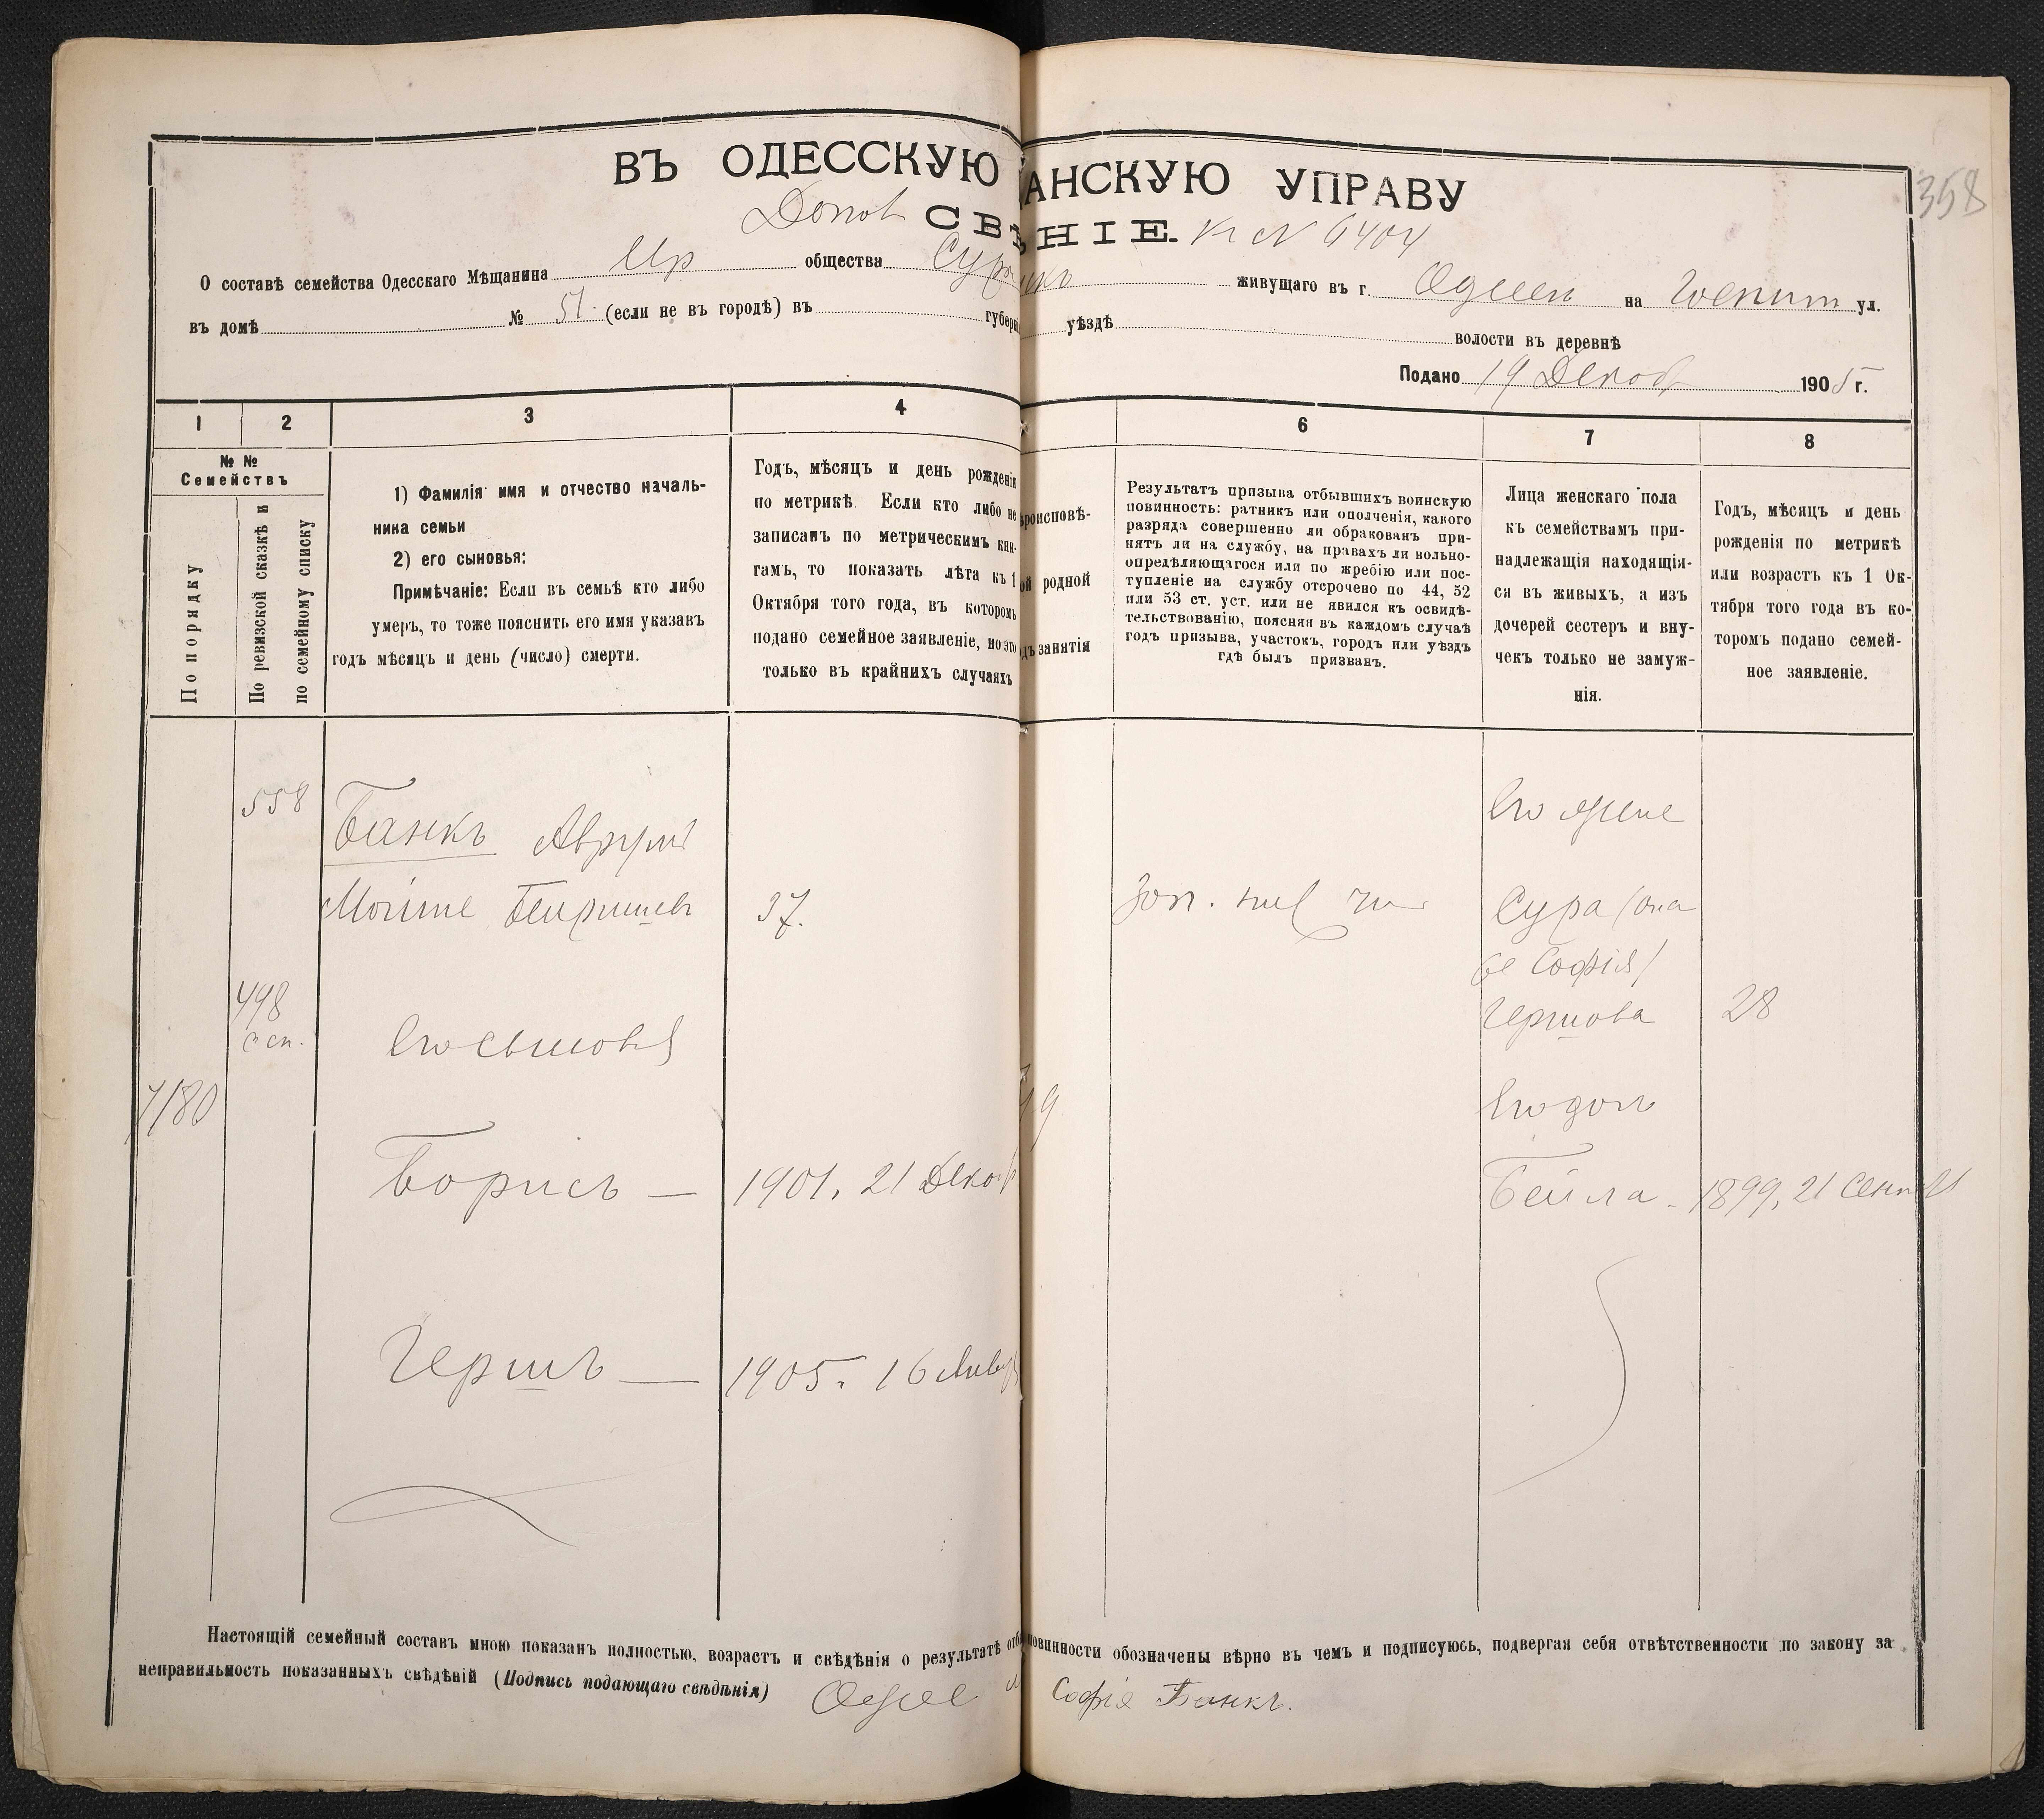 358
ВЪ ОДЕССКУЮ АНСКУЮ УПРАВУ
СВѢ НІЕ. К № 6404
О составѣ семейства Одесскаго Мѣщанина общества живущаго въ г. на ул.
въ домѣ № 51. (если не въ городѣ) въ губерн уѣздѣ волости въ деревнѣ
Подано 19 Декаб 1905 г.
1 2 3 4 6 7 8
№ №
Семействъ
По порядку
По ревизской сказкѣ и
по семейному списку
1) Фамилія имя и отчество началь-
ника семьи
2) его сыновья:
Примѣчаніе: Если въ семьѣ кто либо
умеръ, то тоже пояснить его имя указавъ
годъ мѣсяцъ и день (число) смерти.
Годъ, мѣсяцъ и день рожденія
по метрикѣ. Если кто либо не
записанъ по метрическимъ кни-
гамъ, то показать лѣта къ 1
Октября того года, въ которомъ
подано семейное заявленіе, но это
только въ крайнихъ случаяхъ
роисповѣ-
ой родной
дъ занятія
Результатъ призыва отбывшихъ воинскую
повинность: ратникъ или ополченія, какого
разряда совершенно ли обракованъ при-
нятъ ли на службу, на правахъ ли вольно-
опредѣляющагося или по жребію или пос-
тупленіе на службу отсрочено по 44, 52
или 53 ст. уст. или не явился къ освидѣ-
тельствованію, поясняя въ каждомъ случаѣ
годъ призыва, участокъ, городъ или уѣздъ
гдѣ былъ призванъ.
Лица женскаго пола
къ семействамъ при-
надлежащія находящія-
ся въ живыхъ, а изъ
дочерей сестеръ и вну-
чекъ только не замуж-
нія.
Годъ, мѣсяцъ и день
рожденія по метрикѣ
или возрастъ къ 1 Ок-
тября того года въ ко-
торомъ подано семей-
ное заявленіе.
558
Банкъ Аврумъ
Мойше 37.
498
Его сыновья
7180
Борисъ — 1901. 21 Декаб
Гершъ — 1905. 16 Янва
Его жена
Сура (она
же Софія)
Гершова 28
Его доч
Бейла - 1899, 21 Сент
Настоящій семейный составъ мною показанъ полностью, возрастъ и свѣдѣнія о результатѣ отб повинности обозначены вѣрно въ чемъ и подписуюсь, подвергая себя отвѣтственности по закону за
неправильность показанныхъ свѣдѣній (Подпись подающаго свѣдѣнія) Софія Банкъ.